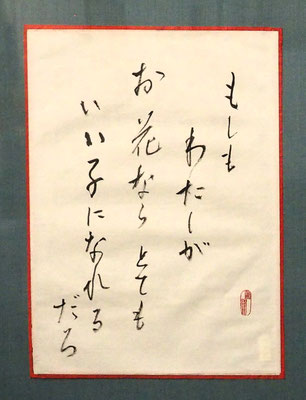 もしも
わたしが
お花なら とても
いい子になれる
だろ